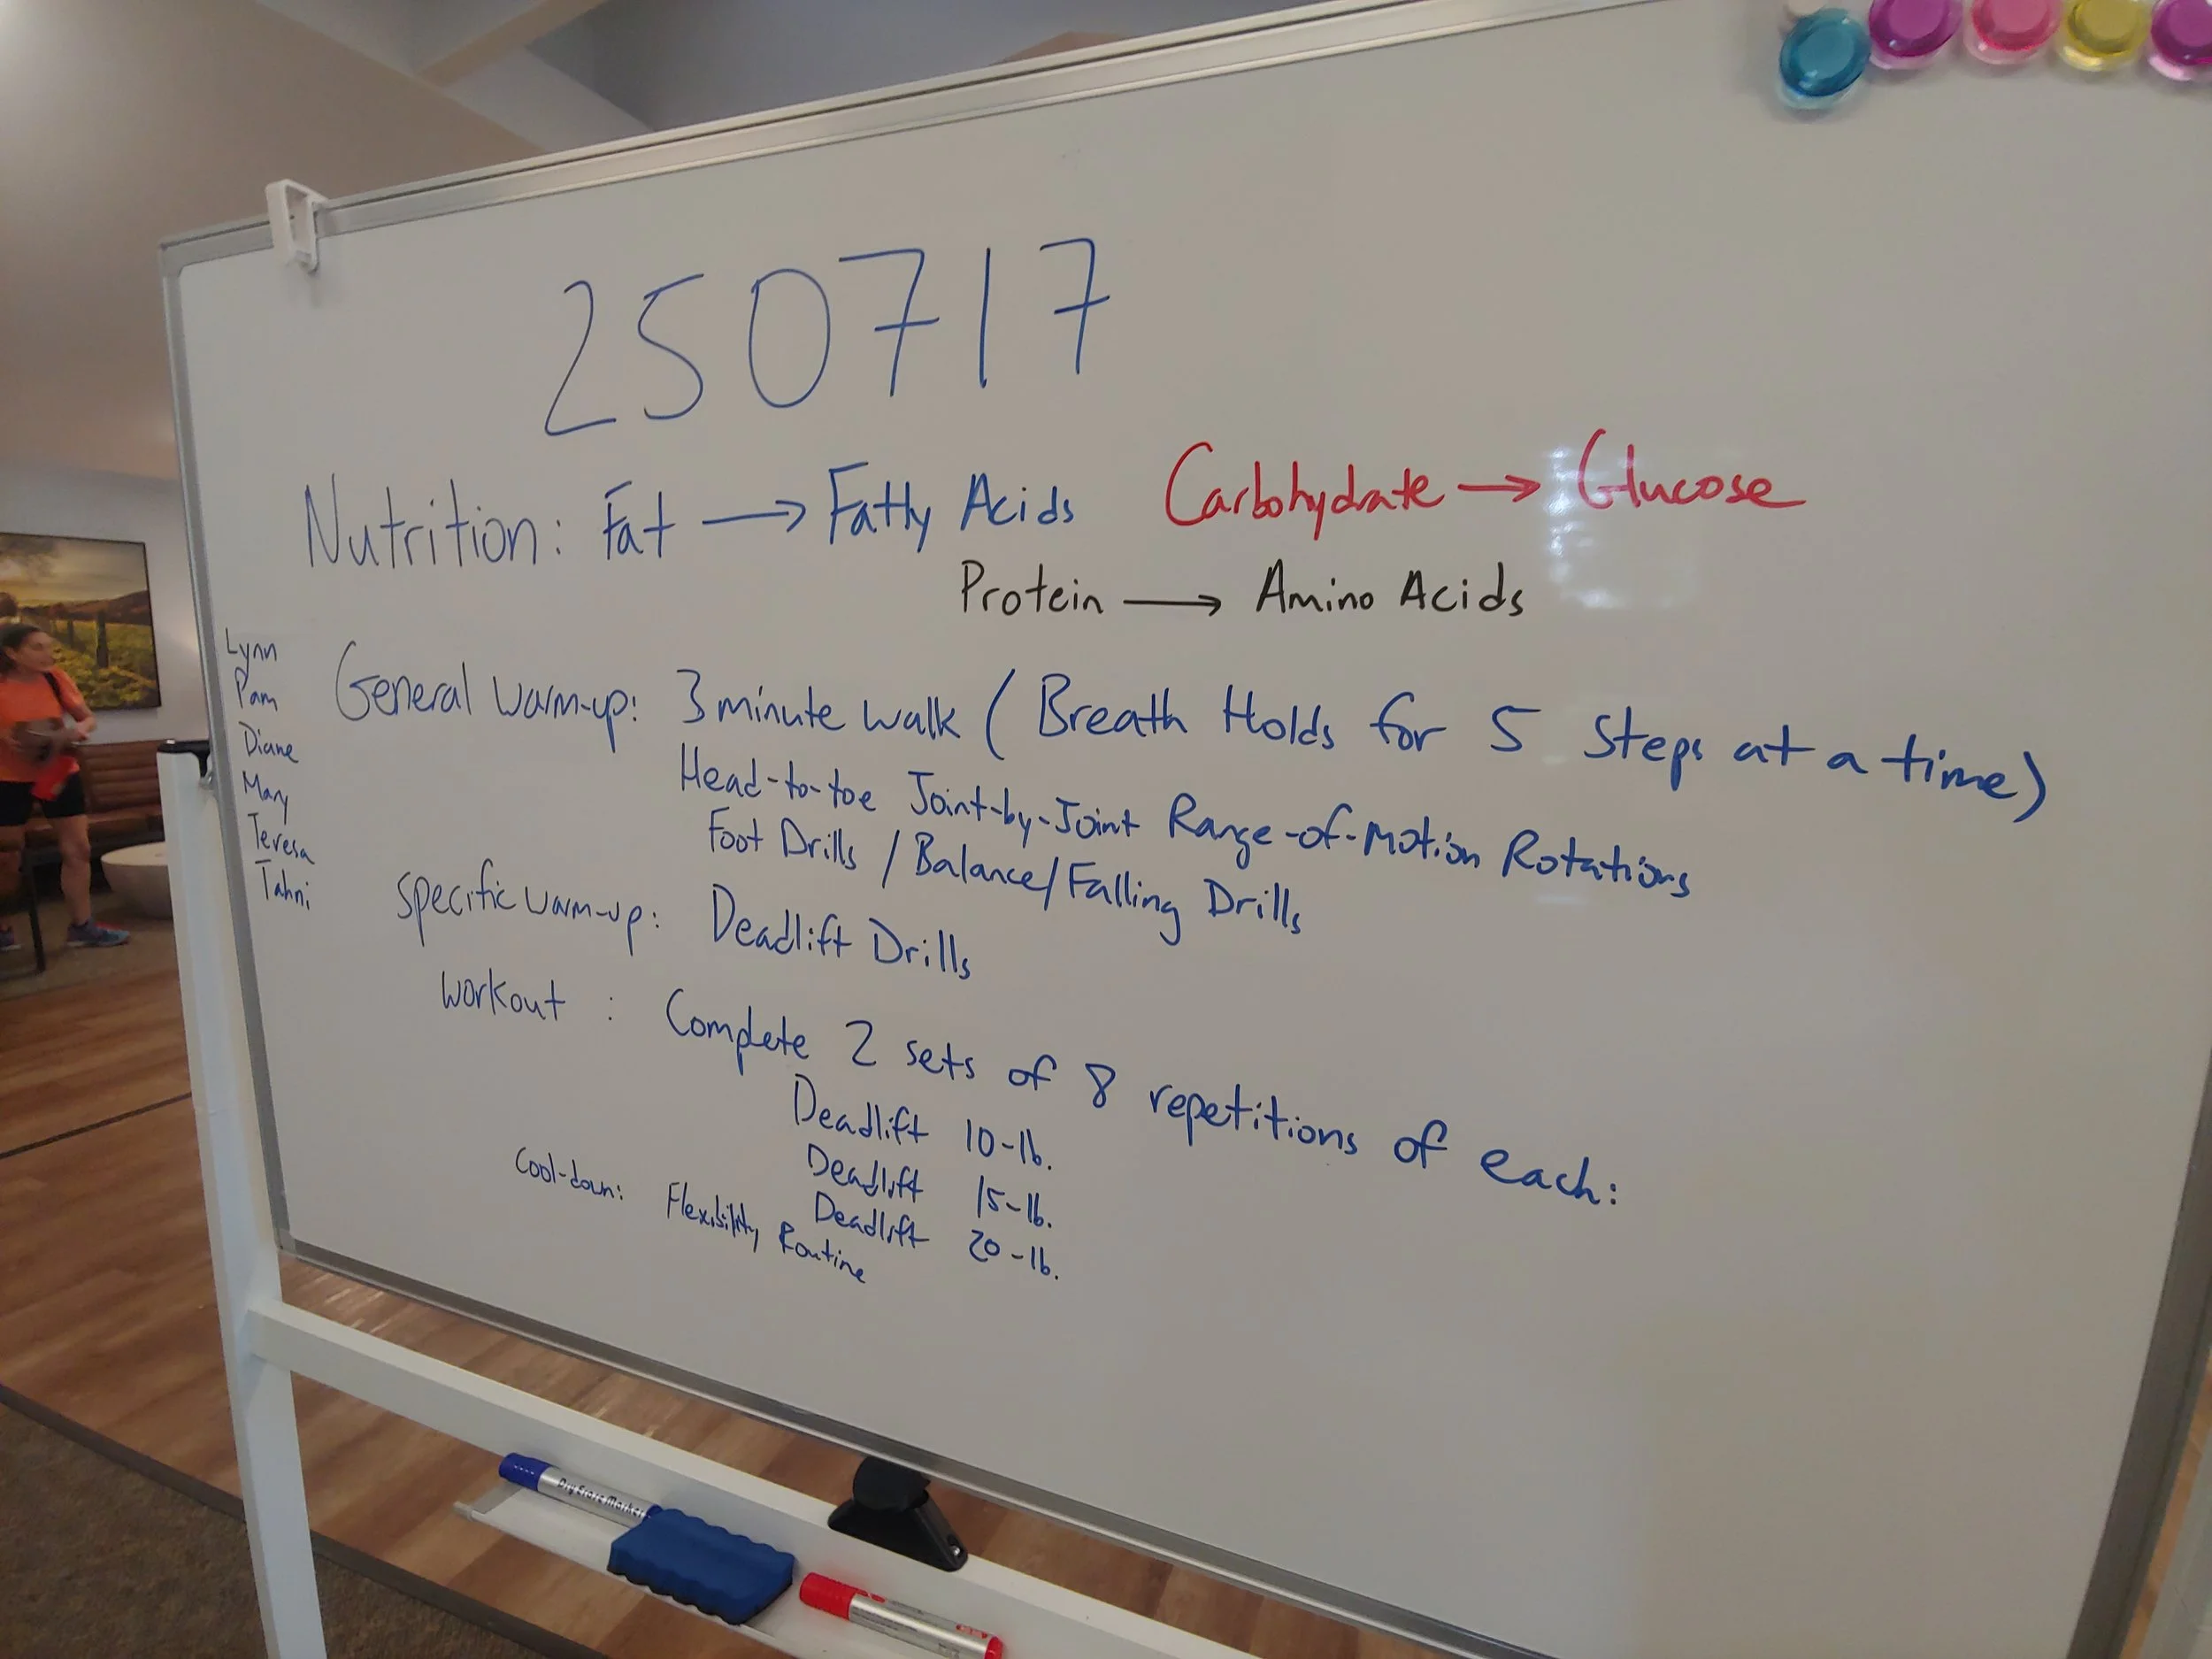 250717
Nutrition: Fat → Fatty Acids Carbohydrate → Glucose
Protein → Amino Acids
Lynn
Pam
Diane
Mary
Teresa
Tahni
General warm-up: 3 minute walk (Breath Holds for 5 steps at a time)
Head-to-toe Joint-by-Joint Range-of-Motion Rotations
Foot Drills / Balance/Falling Drills
Specific warm-up: Deadlift Drills
Workout : Complete 2 sets of 8 repetitions of each:
Deadlift 10-lb.
Deadlift 15-lb.
Deadlift 20-lb.
Cool-down: Flexibility Routine
Dry Erase Marker